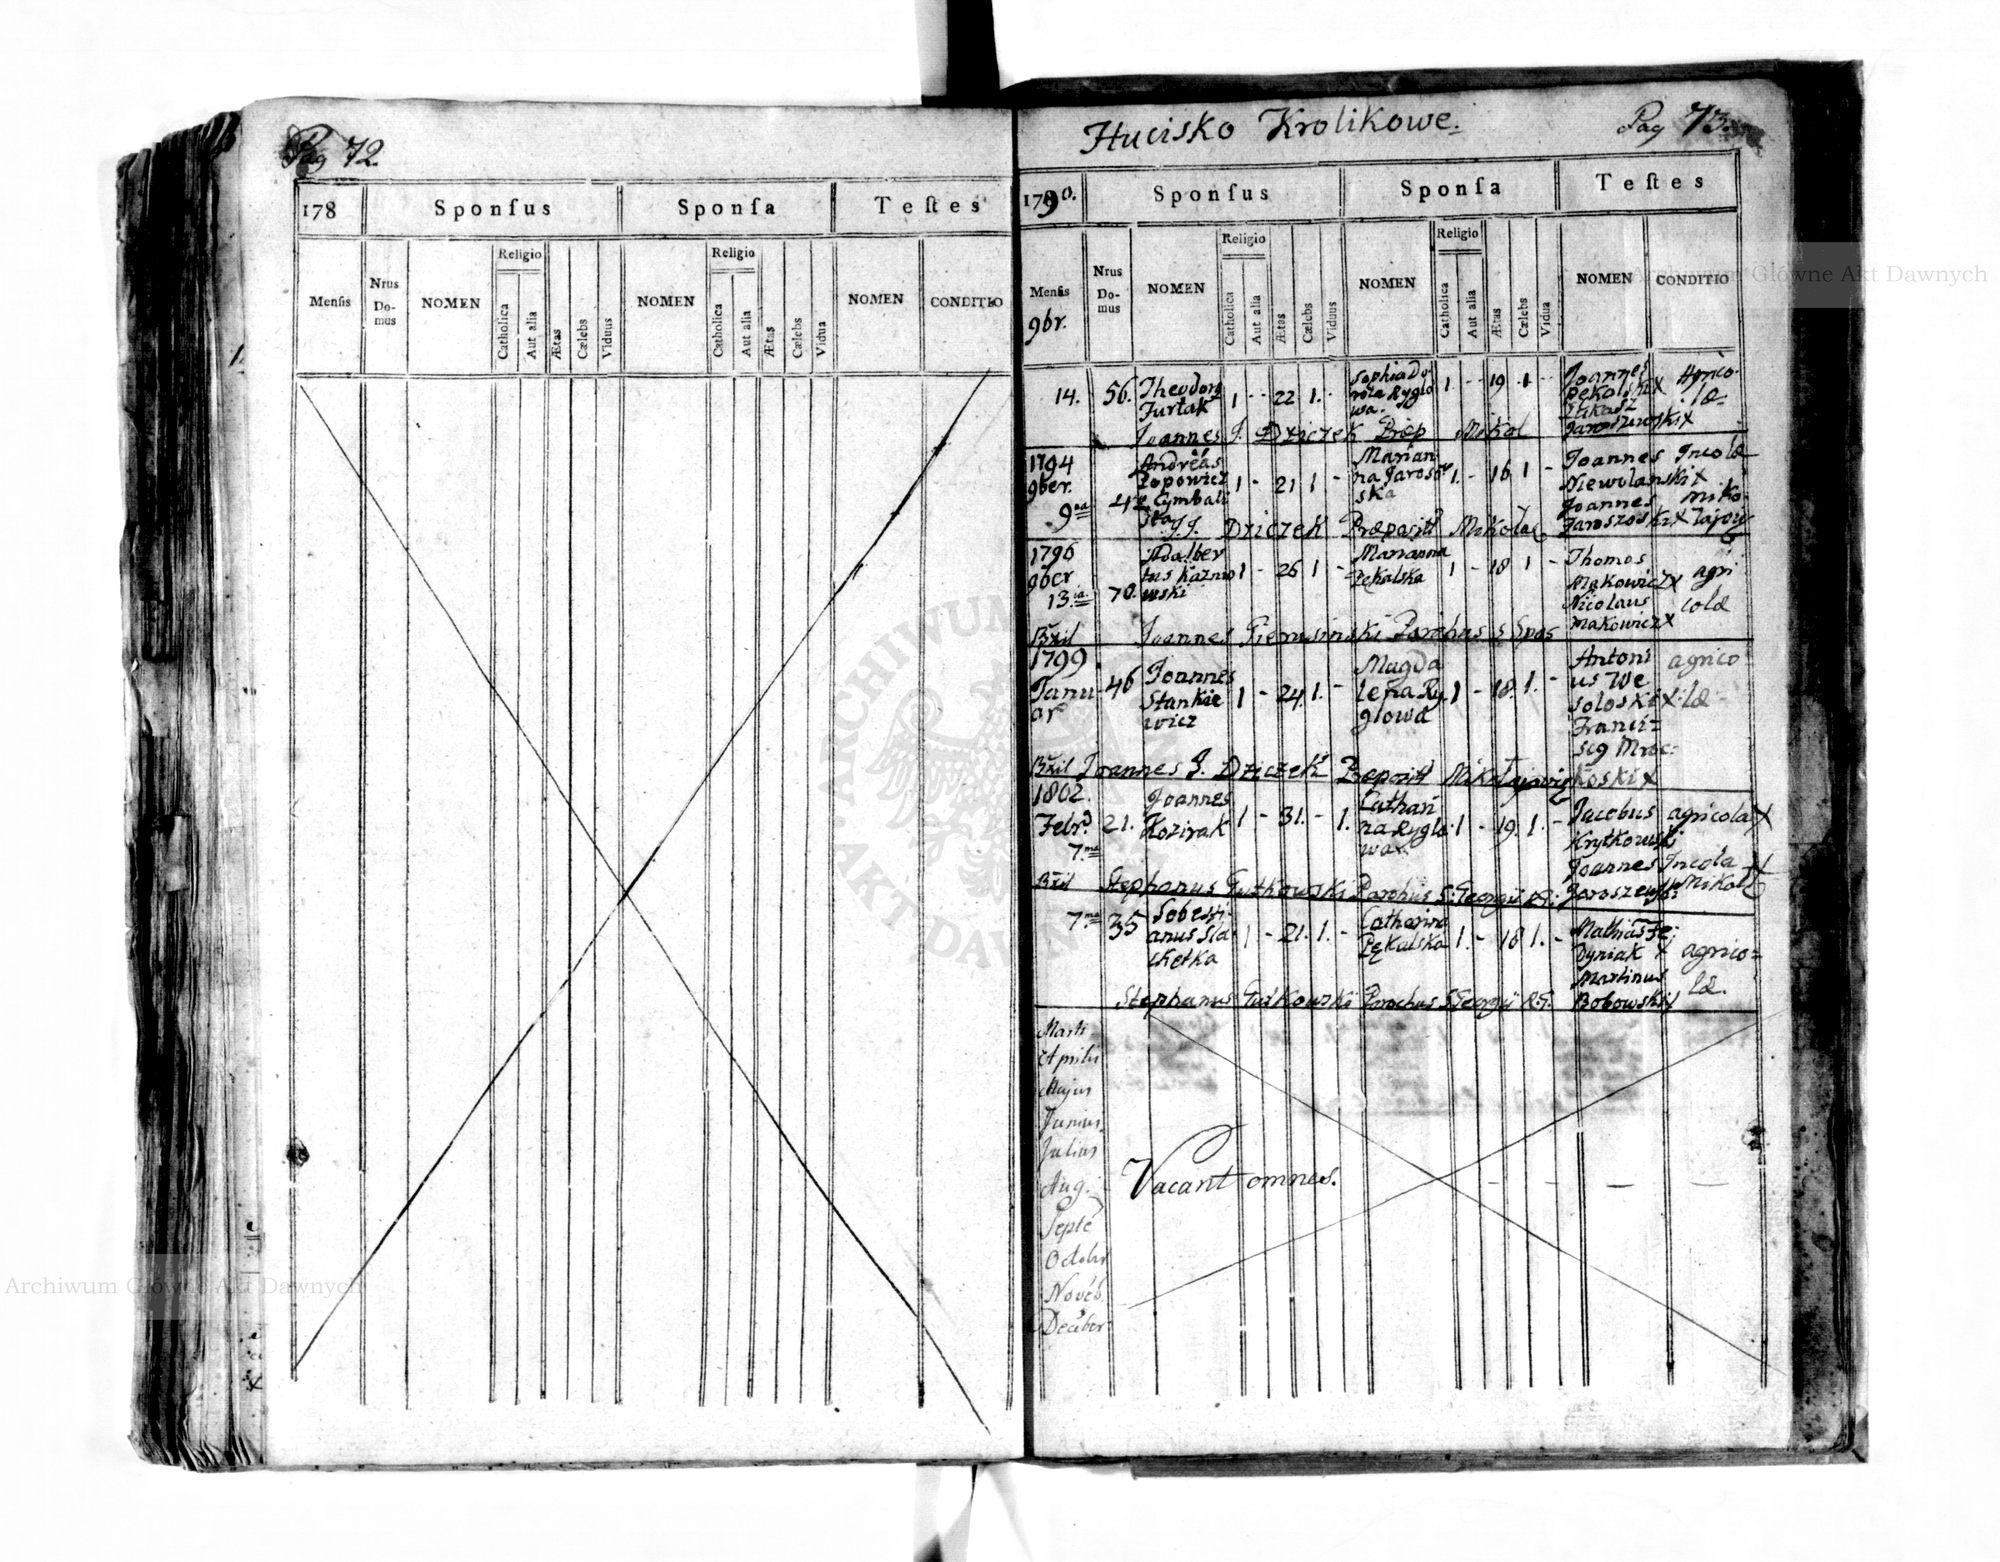 Pag 72.
178
Sponſus
Sponſa
Teſtes
Menſis
Nrus Do-mus
NOMEN
Religio
Catholica
Aut alia
Ætas
Cælebs
Viduus
NOMEN
Religio
Catholica
Aut alia
Ætas
Cælebs
Vidua
NOMEN
CONDITIO
Hucisko Krolikowe.
Pag 73.
1790.
Sponſus
Sponſa
Teſtes
Menſis
9br.
Nrus Do-mus
NOMEN
Religio
Catholica
Aut alia
Ætas
Cælebs
Viduus
NOMEN
Religio
Catholica
Aut alia
Ætas
Cælebs
Vidua
NOMEN
CONDITIO
14. 56. Theodorus Furtak 1 - 22 1. - Sophia Dorota Ryglowa. 1. - 19 1 - Joannes Pękalski x Łukasz Jaroszewski x Agricolæ
Joannes J. Dziczek Præp Mikol
1794 9ber. 9na 42 Andreas Popowicz Cymbalista 1 - 21 1 - Marianna Jarososka 1. - 16 1 - Joannes Niewolanski x Joannes Jaroszoski x Incolæ mikolajow
J. J. Dziczek Præposit Mikolaj
1796 9ber 13ia. 70. Adalbertus Kaznowski 1 - 26 1 - Marianna Pekalska 1 - 18 1 - Thomas Makowicz x Nicolaus makowicz x agricolæ
Bžil Joannes Pierusinski Parochus S Spas
1799 Januar 46 Joannes Stankiewicz 1 - 24 1. - Magdalena Ryglowa 1 - 18. 1. - Antonius Wesoloski x Franciscg Mrockoski x agricolæ
Bžil Joannes J. Dziczek Præposit Mikołajovien
1802. Febr. 7.ma 21. Joannes Kozirak 1 - 31. - 1. Catharina Ryglowa 1 - 19. 1. - Jacobus Krytkowski agricola x
Joannes Jaroszewski Incola Mikol x
Bžil Stephanus Gutkowski Parochus S: Georgii RG:
7.ma 35 Sobestianus Slachetka 1 - 21. 1. - Catharina Pękalska 1. - 18 1. - Mathias Fedyniak x Martinus Bobowski x agricolæ.
Stephanus Gutkowski Parochus S Georgii RG.
Marti
Aprilii
Majus
Junius
Julius
Aug.
Septe
Octobr
Novēb.
Decēber
Vacant omnes.
Archiwum Główne Akt Dawnych
Archiwum Główne Akt Dawnych
ARCHIWUM AKT DAWNYCH